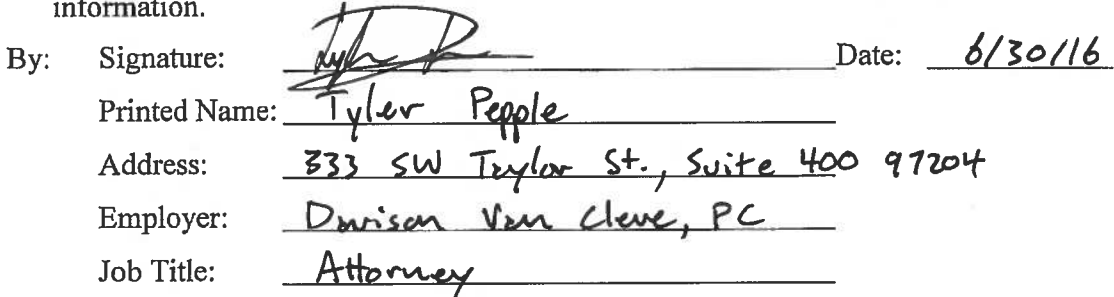 information.
By: Signature: Tyler P Date: 6/30/16
Printed Name: Tyler Pepple
Address: 333 SW Taylor St., Suite 400 97204
Employer: Davison Van Cleve, PC
Job Title: Attorney